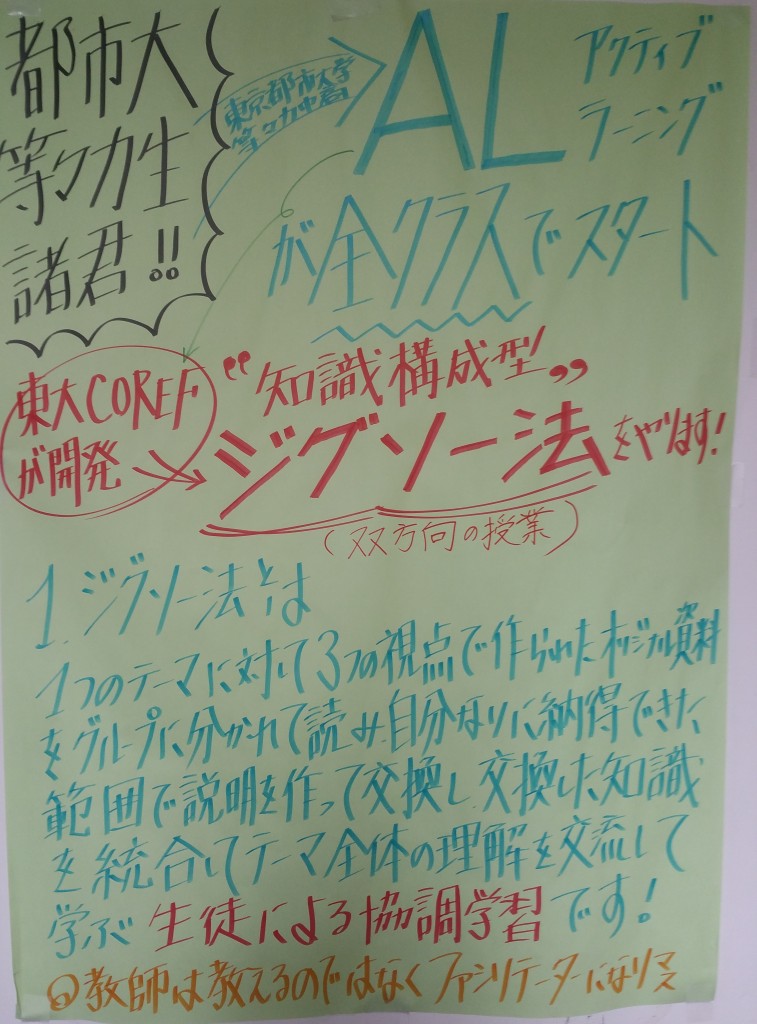 都市大
等々力生
諸君!!
東京都市大学
等々力中高
AL
アクティブ
ラーニング
が全クラスでスタート
東大COREF
が開発
“知識構成型”
ジグソー法をやります!
(双方向の授業)
1.ジグソー法とは
1つのテーマに対して3つの視点で作られたオリジナル資料
をグループに分かれて読み、自分なりに納得できた
範囲で説明を作って交換し、交換した知識
を統合してテーマ全体の理解を交流して
学ぶ生徒による協調学習です!
◎教師は教えるのではなくファシリテーターになりマス